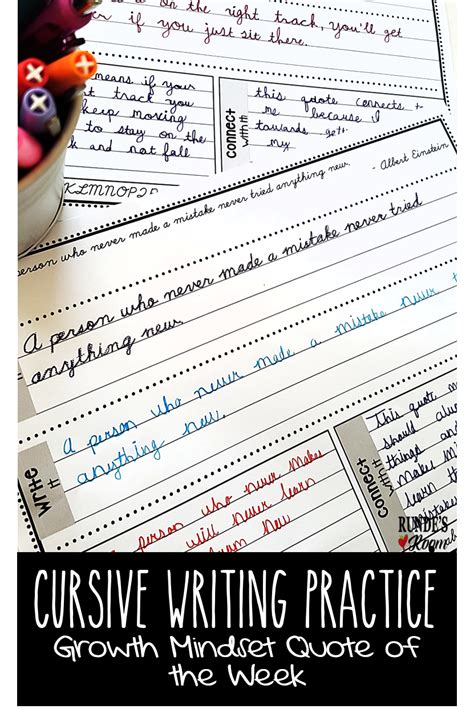 on the right track, you'll get
er if you just sit there.
means if your
t track you
keep moving
to stay on the
k and not fall
connect
with it
this quote connects t
me because I
towards gett
my
KLMNOP
person who never made a mistake never tried anything new.
- Albert Einstein
A person who never made a mistake never tried
anything new.
write
it
A person who never made a mistake never t
anything new.
person who never makes
will never learn
from new
connect
with it
This quote m
should alway
things and
makes mi
learn th
mistak
RUNDE'S
Room
CURSIVE WRITING PRACTICE
Growth Mindset Quote of
the Week